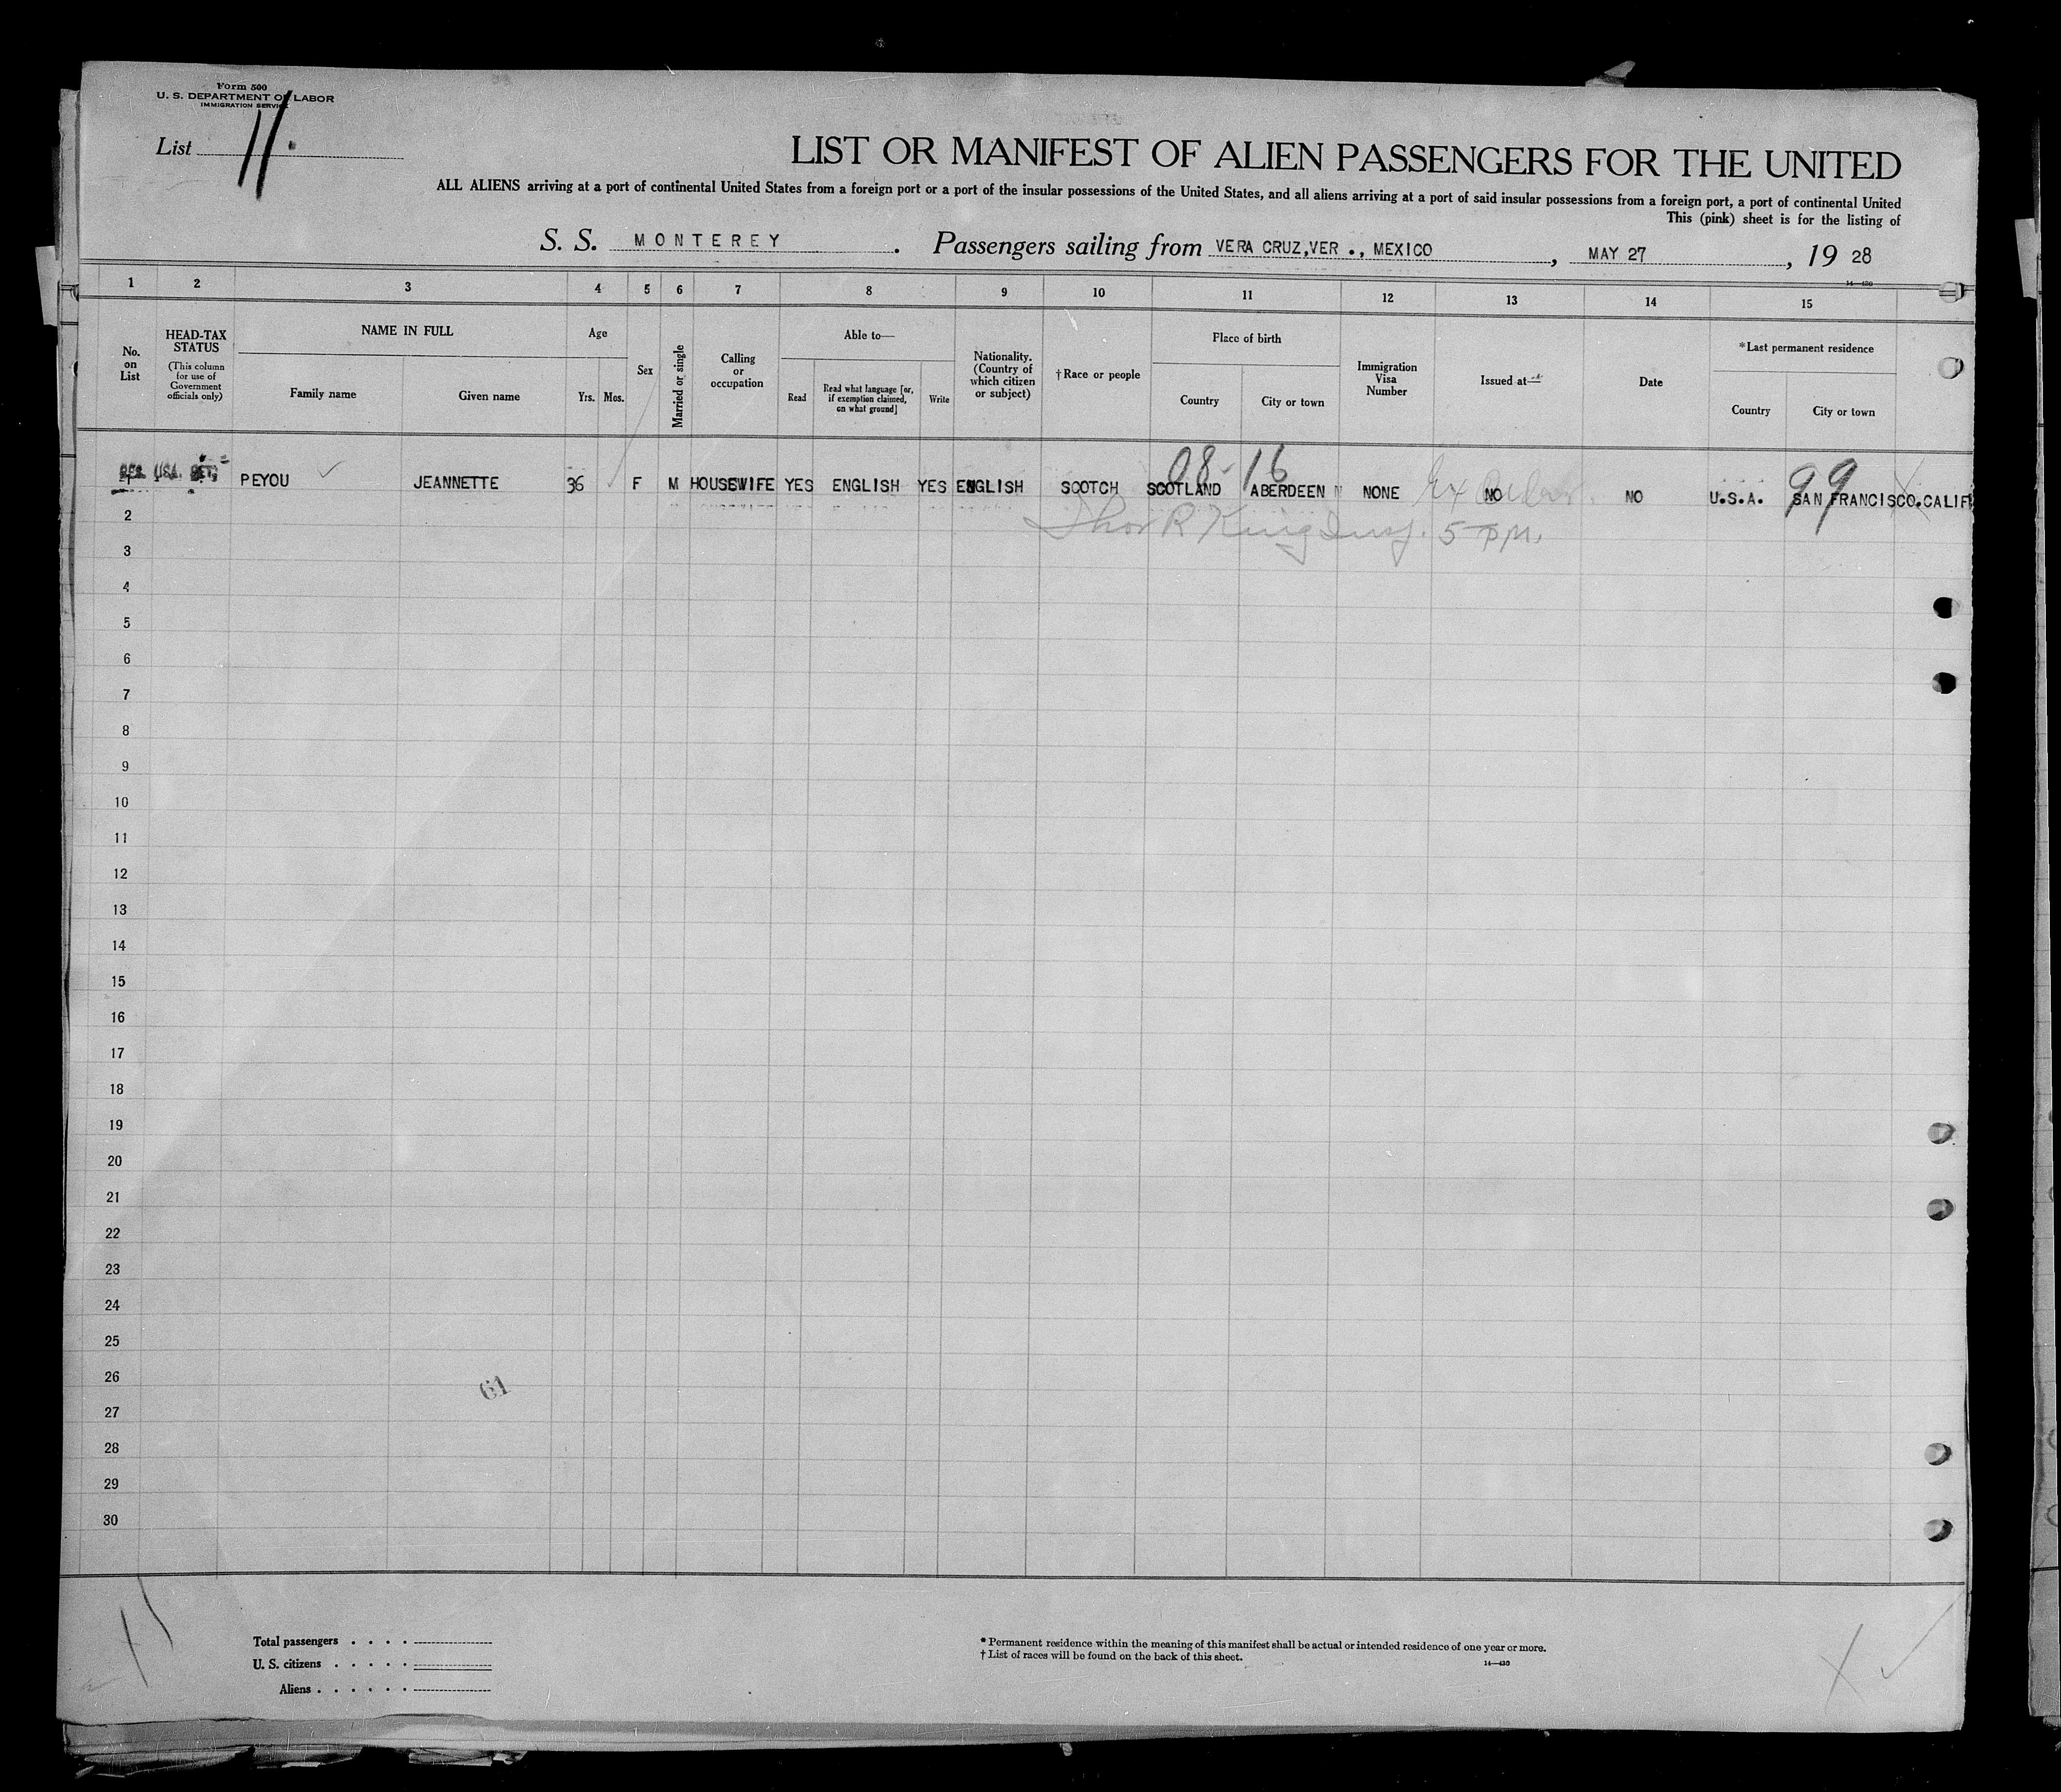 Form 500
U. S. DEPARTMENT OF LABOR
IMMIGRATION SERVICE
List 11.
LIST OR MANIFEST OF ALIEN PASSENGERS FOR THE UNITED
ALL ALIENS arriving at a port of continental United States from a foreign port or a port of the insular possessions of the United States, and all aliens arriving at a port of said insular possessions from a foreign port, a port of continental United
This (pink) sheet is for the listing of
S. S. MONTEREY. Passengers sailing from VERA CRUZ,VER ., MEXICO, MAY 27, 19 28
14—430
1 2 3 4 5 6 7 8 9 10 11 12 13 14 15
No. on List
HEAD-TAX STATUS
(This column for use of Government officials only)
NAME IN FULL
Family name
Given name
Age
Yrs. Mos.
Sex
Married or single
Calling or occupation
Able to—
Read
Read what language [or, if exemption claimed, on what ground]
Write
Nationality. (Country of which citizen or subject)
†Race or people
Place of birth
Country
City or town
Immigration Visa Number
Issued at—
Date
*Last permanent residence
Country
City or town
08-16
99
1 PEYOU JEANNETTE 36 F M HOUSEWIFE YES ENGLISH YES ENGLISH SCOTCH SCOTLAND ABERDEEN NONE NO NO U.S.A. SAN FRANCISCO.CALIF
R King 5 PM.
2
3
4
5
6
7
8
9
10
11
12
13
14
15
16
17
18
19
20
21
22
23
24
25
26
27
28
29
30
61
Total passengers . . . .
U. S. citizens . . . . .
Aliens . . . . . .
* Permanent residence within the meaning of this manifest shall be actual or intended residence of one year or more.
† List of races will be found on the back of this sheet.
14—430